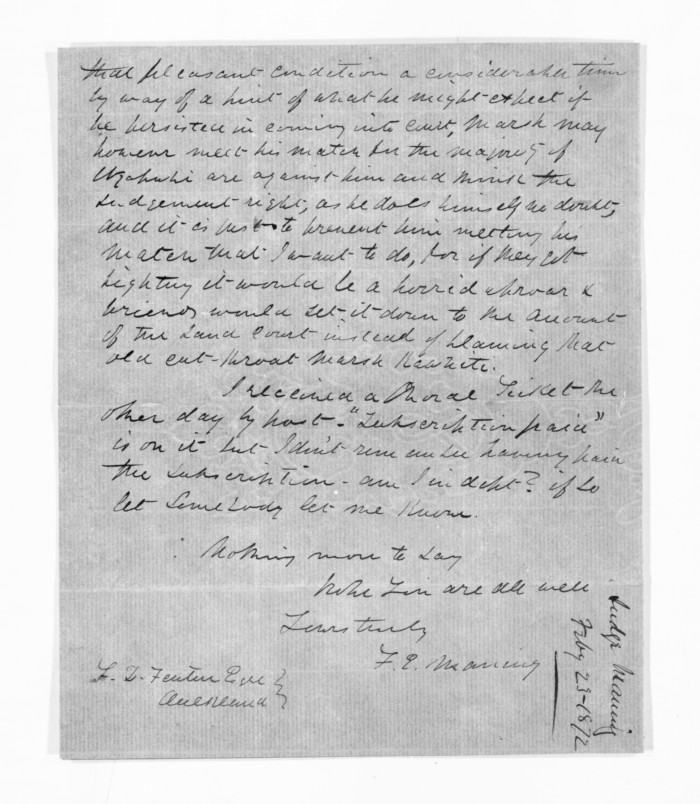 that pleasant condition a considerable time
by way of a hint of what he might expect if
he persisted in coming into court, Marsh may
however meet his match for the majority of
Ngapuhi are against him and think the
Judgement right, as he does himself no doubt,
and it is just to prevent him meeting his
match that I want to do, for if they got
fighting it would be a horrid uproar &
friends would set it down to the account
of the Land Court instead of blaming that
old cut-throat Marsh Kawhiti.
I received a Choral Ticket the
other day by post - "Subscription paid"
is on it but I don't remember having paid
the subscription - am I in debt? if so
let Somebody let me Know.
Nothing more to say
hope you are all well
Yours truly
F. E. Maning
F. D. Fenton Esqre }
Auckland }
Judge Maning
Feby 23-1872